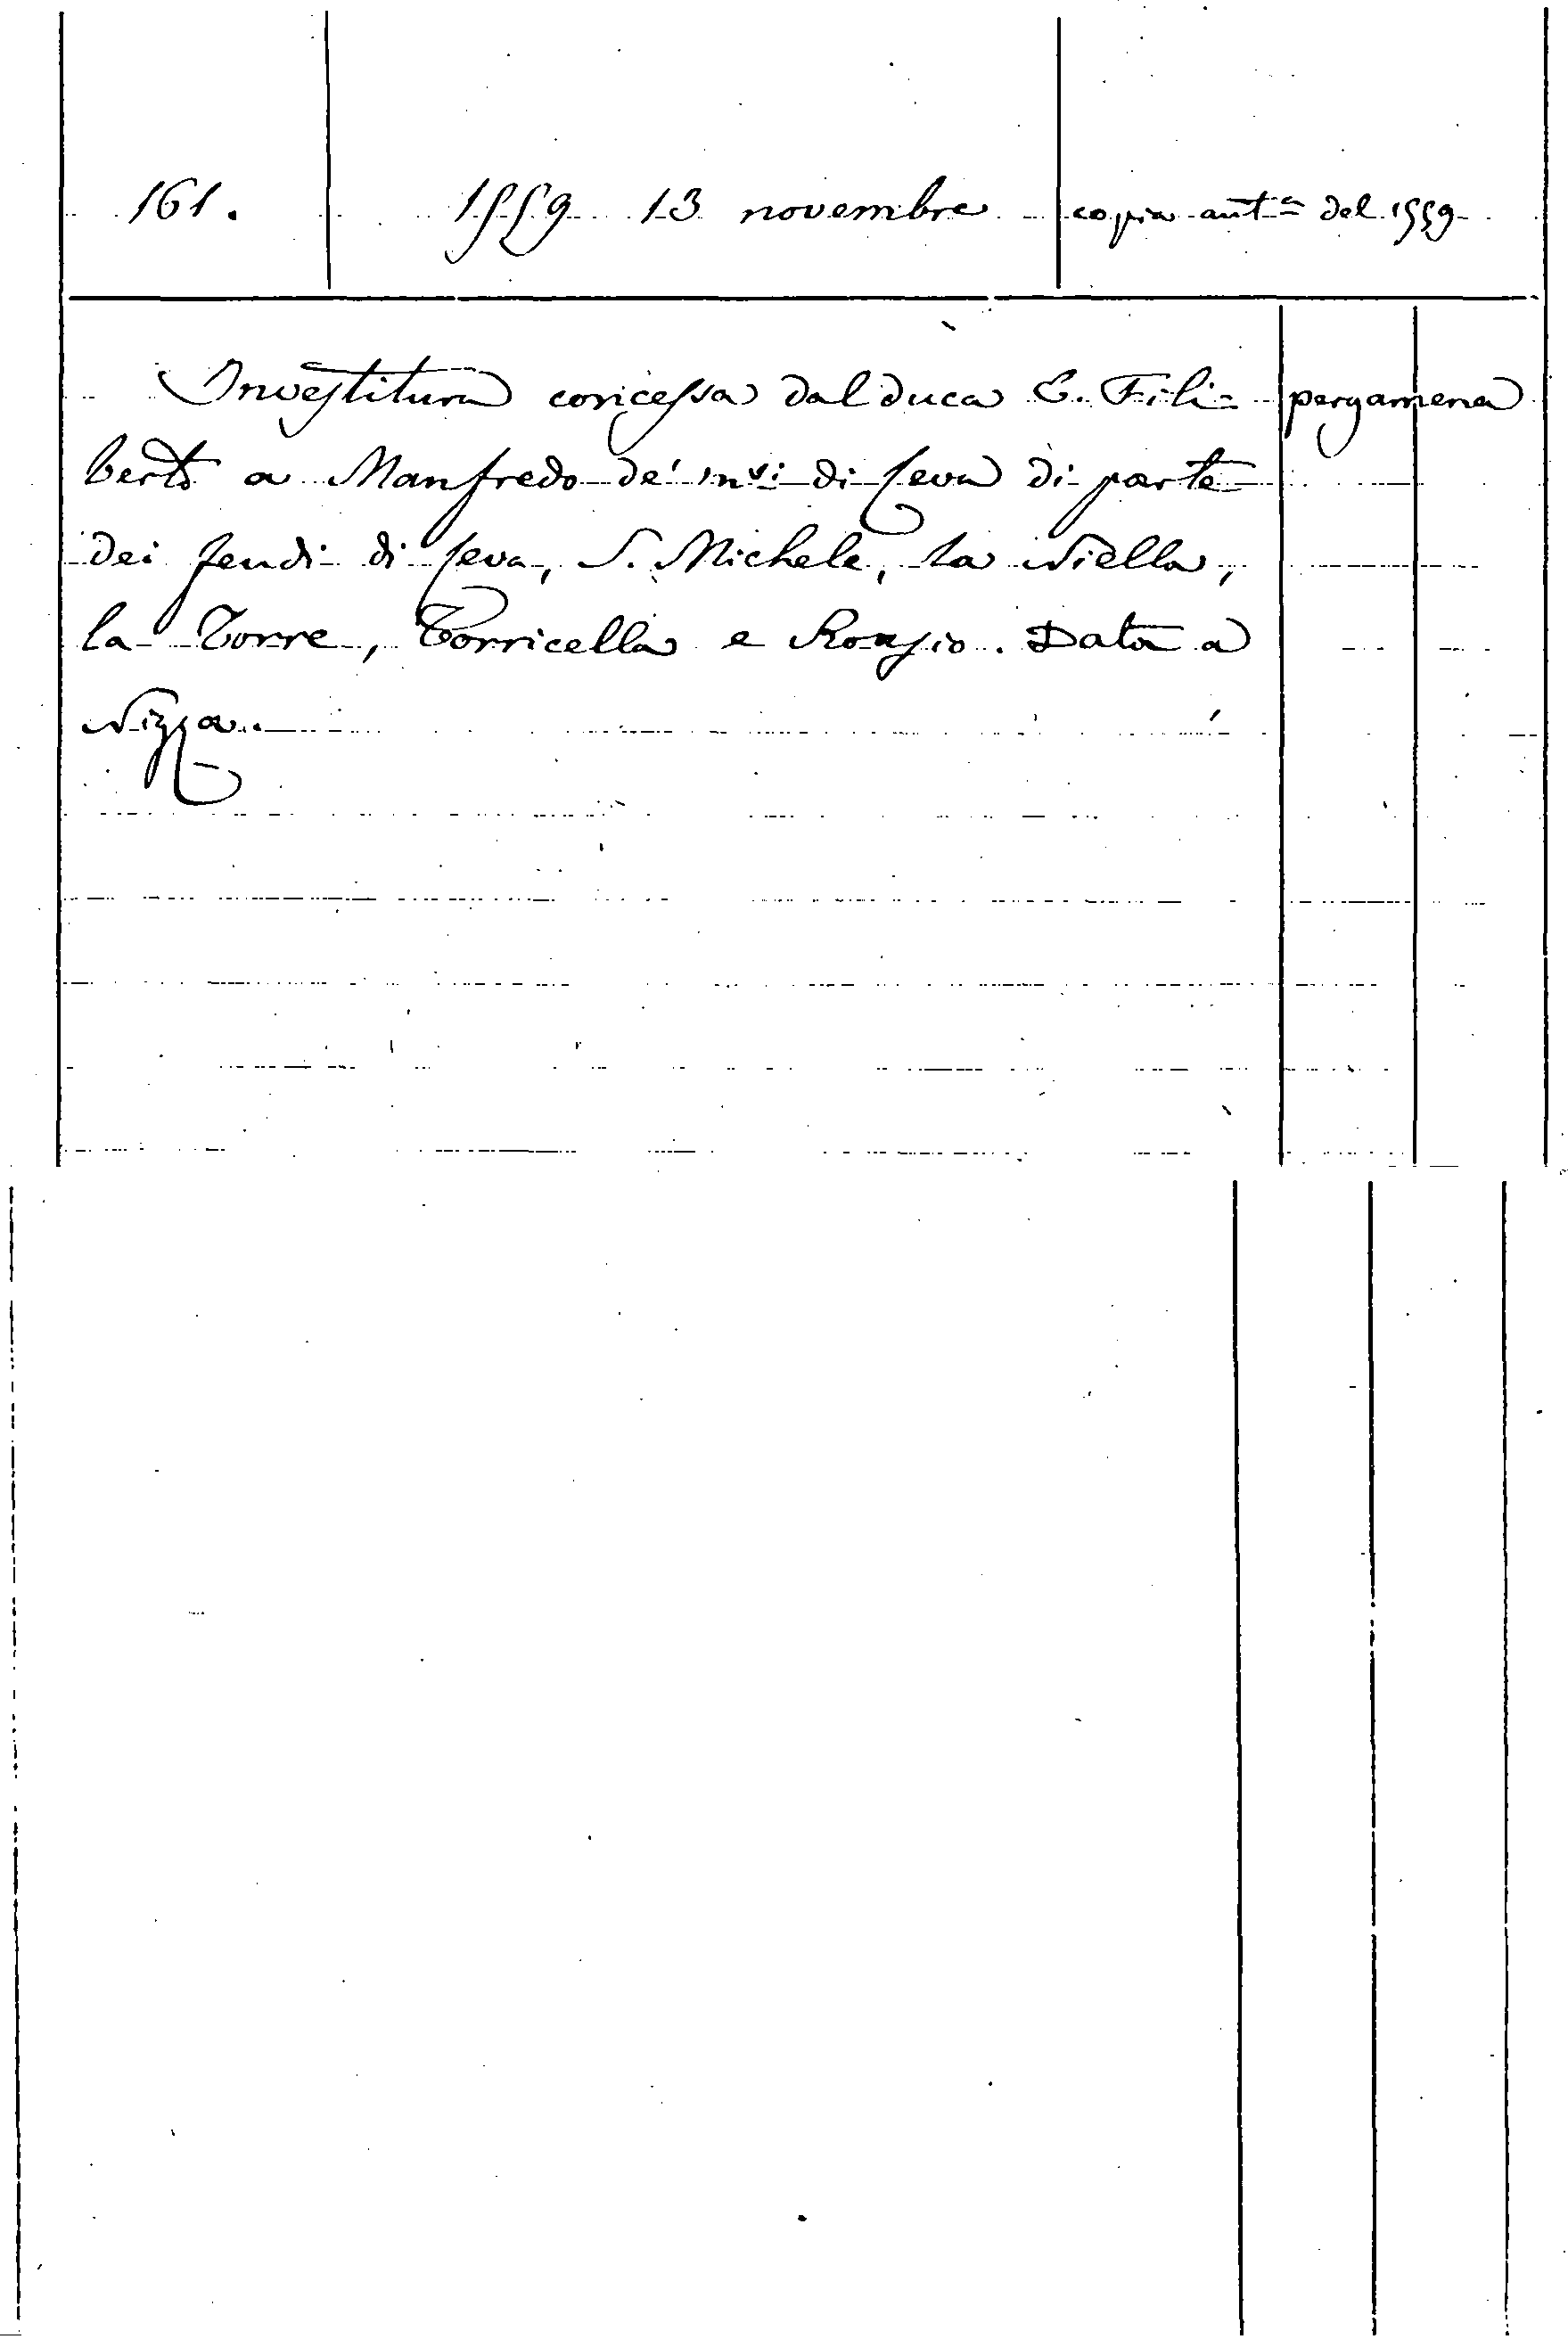 161. 1559 13 novembre copia aut.ca del 1559
Investitura concessa dal duca E. Fili= pergamena
berto a Manfredo de' m.si di Ceva di parte
dei feudi di Ceva, S. Michele, la Niella,
la Torre, Torricella e Roasio. Data a
Nizza.